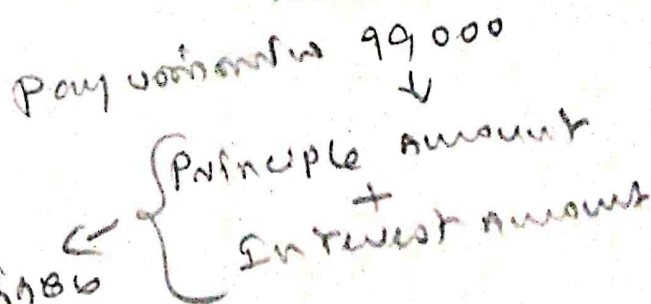 Pay பண்ணிய 99000
↓
{ Principle Amount
← +
Interest Amount